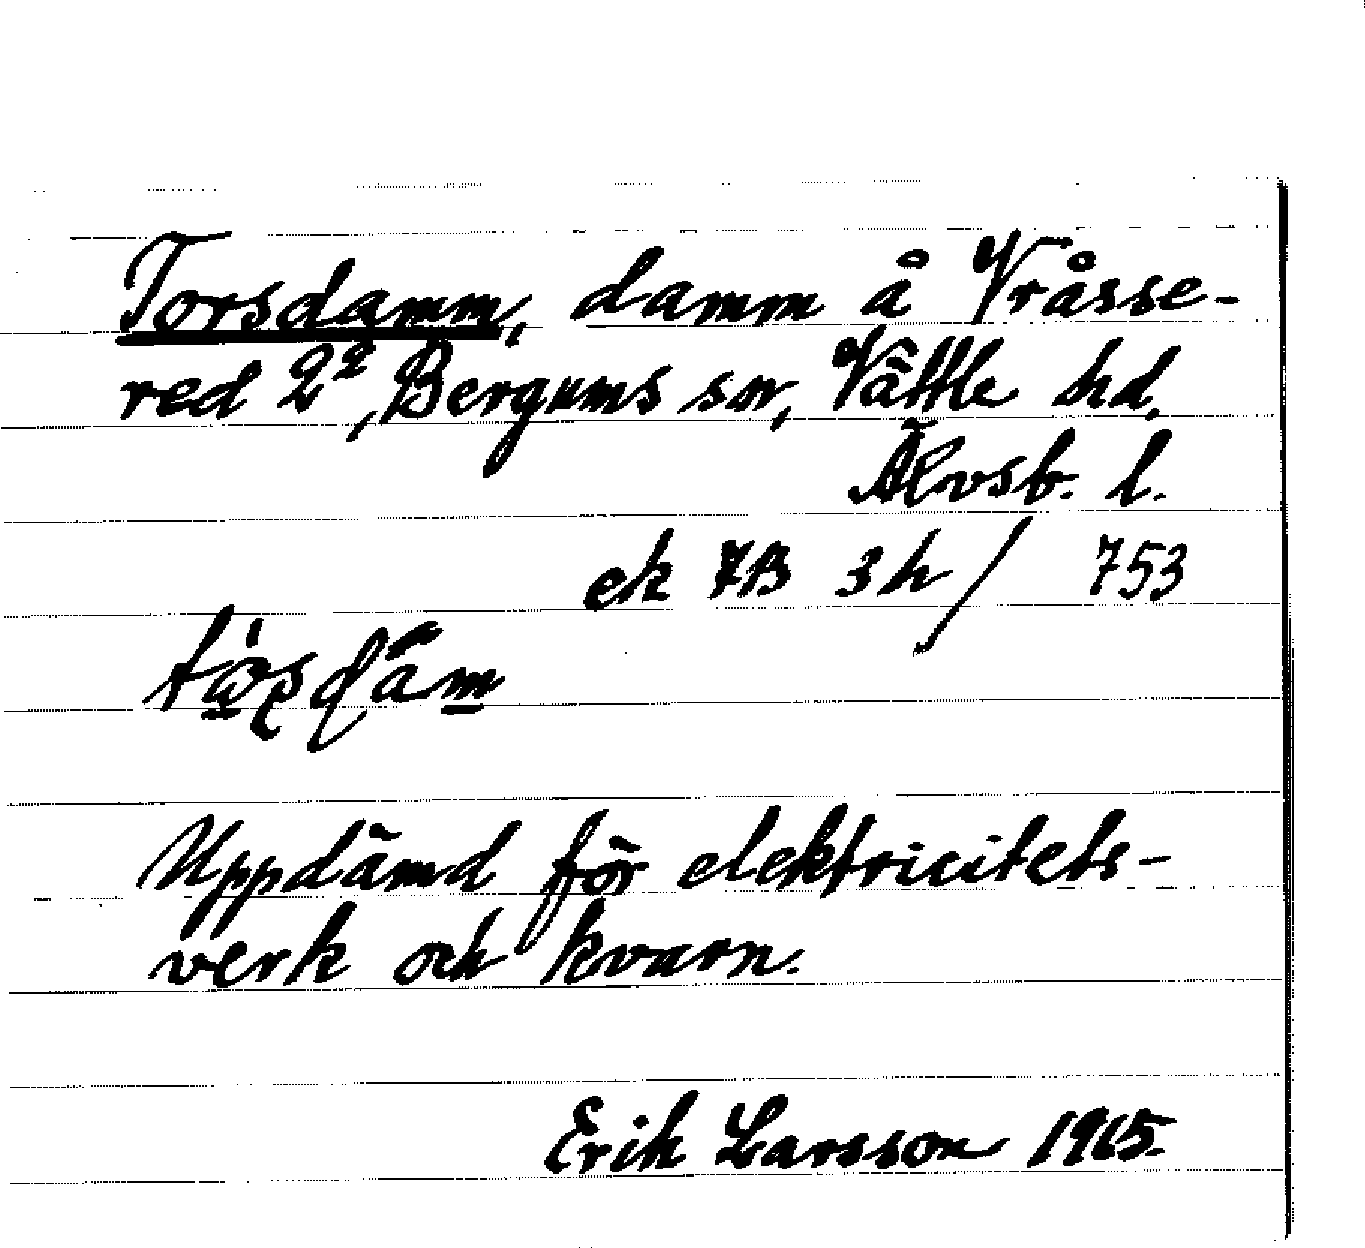 Torsdamm, damm å Vråsse-
red 2², Bergums sn, Vättle hd,
Älvsb. l.
ek 7B 3h / 753
Uppdämd för elektricitets-
verk och kvarn.
Erik Larsson 1965.